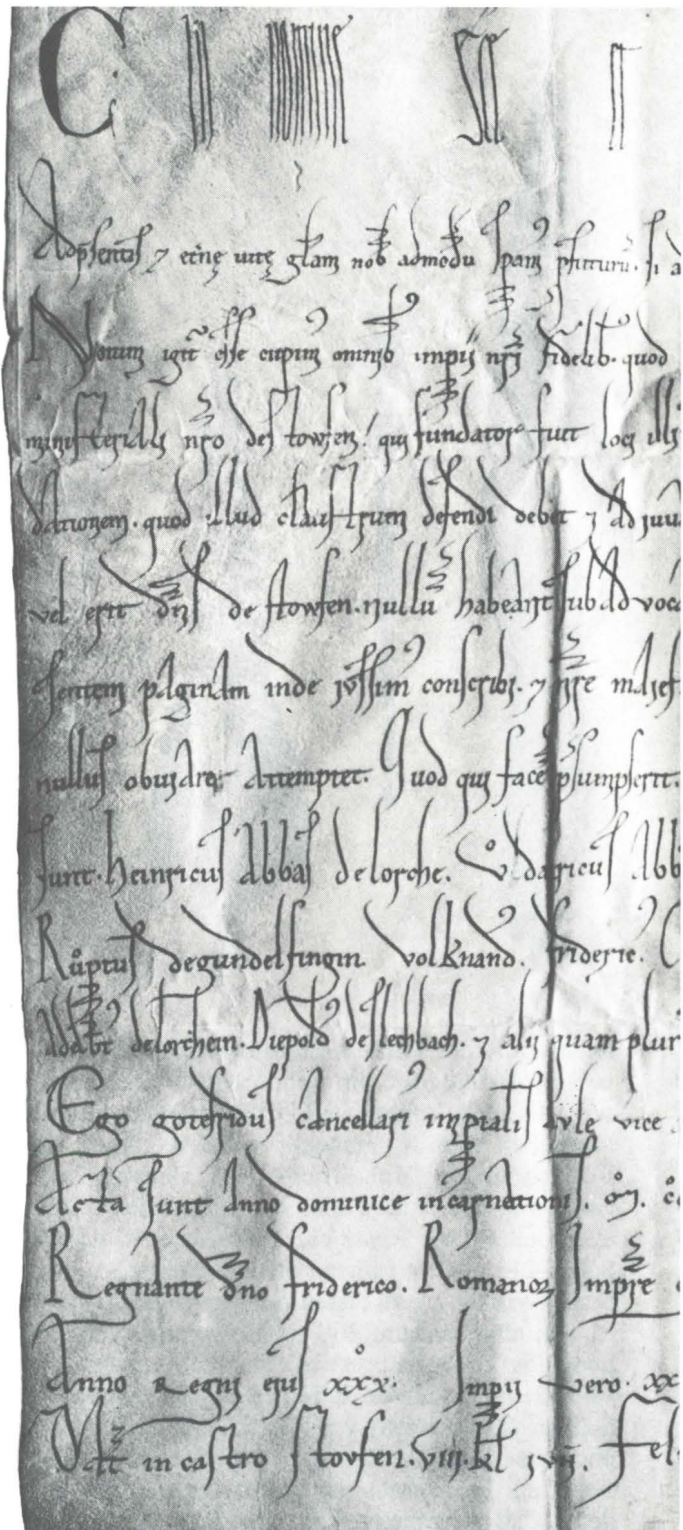 C In nomine sce et
Ad psentis ⁊ etne uite gliam nob admodu spam pfuturu. si a
Notum igit esse cupim omnib impii nri fidelib. quod
ministerialis nro de stowfen. qui fundator fuit loci illi
dationem. quod illud claustrum defendi debet ⁊ adiuu
vel erit dns de stowfen. nullu habeant sub advoca
sentem paginam inde iussim conscribi. ⁊ nre maiest
nullus obuiare attemptet. Quod qui face psumpserit.
sunt. heinricus Abbas de lorche. Vͦdalricus Abb
Ruͦptus de gundelfingin volknand. frideric.
Adelbt de lorchein. Diepold de slechbach. ⁊ alii quam plur
Ego gotefridus cancellari impialis aule vice
Acta sunt Anno dominice incarnationis. oͦ. cͦ
Regnante dno friderico. Romanoꝝ Impre
Anno Regni eius xxx. Impii vero. xx
Dat in castro stovfen. viii. kl ivn. fel.